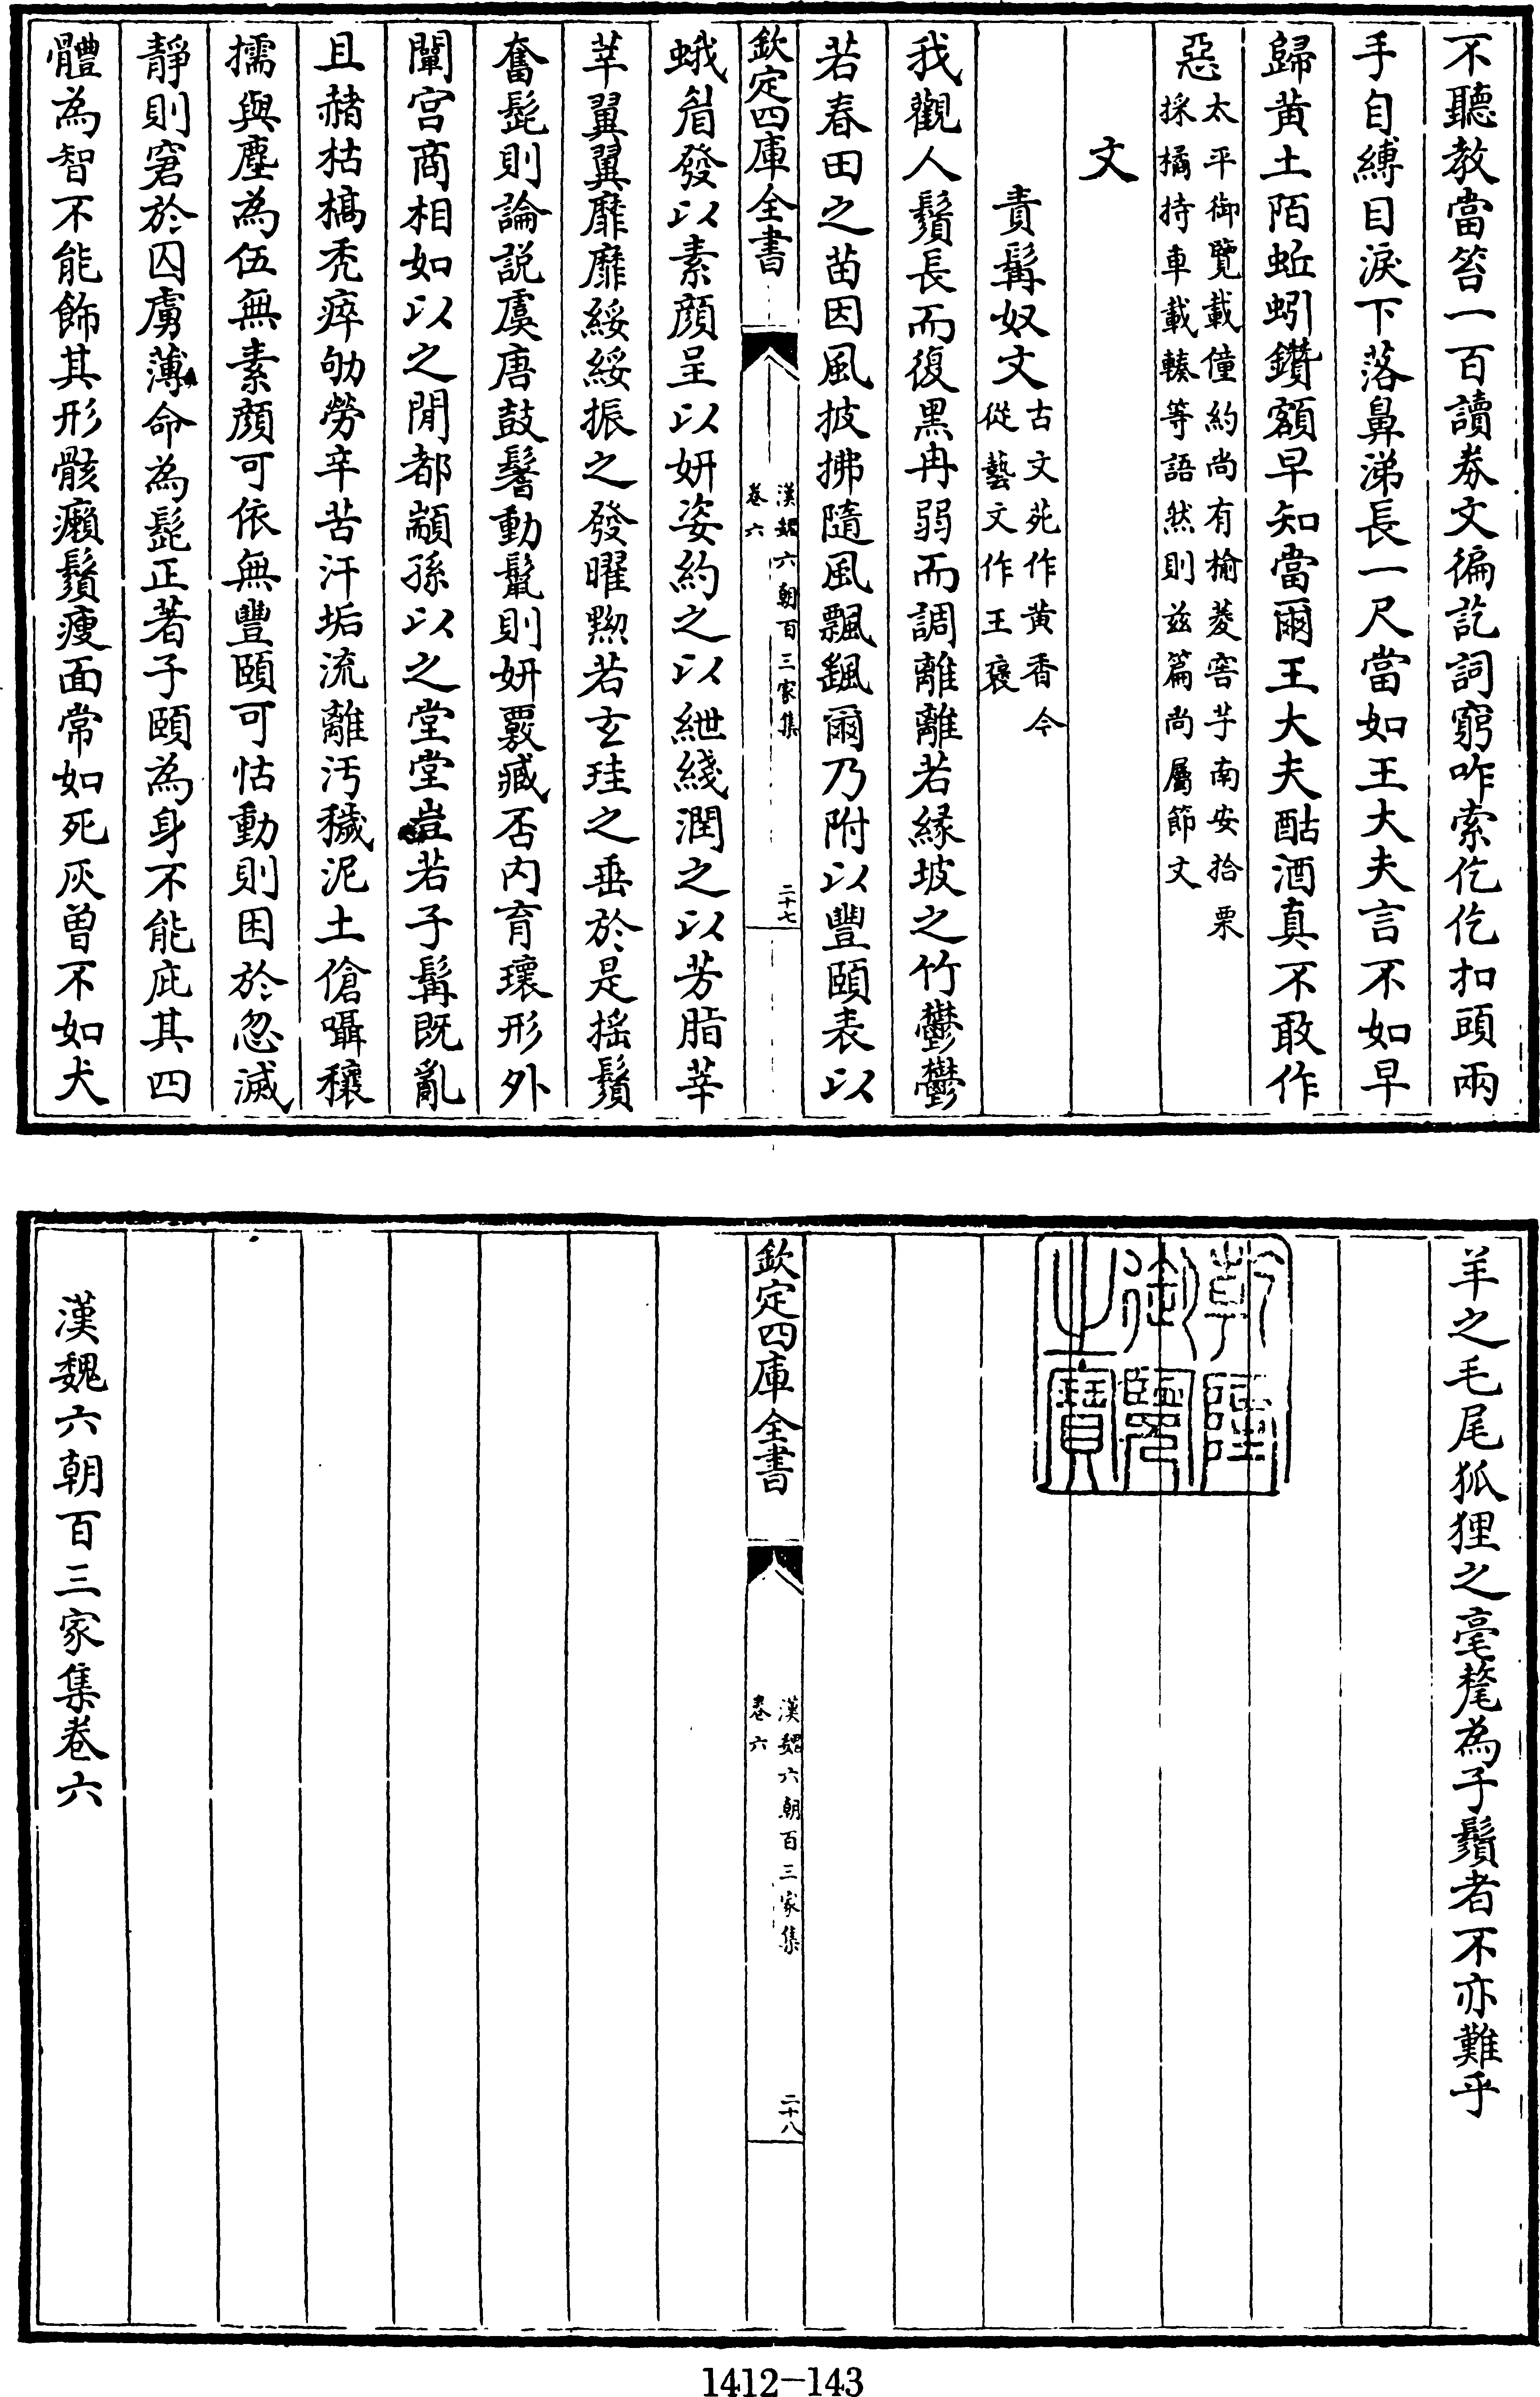 不聽教當笞一百讀劵文徧訖詞窮咋索仡仡扣頭兩
手自縛目淚下落鼻涕長一尺當如王大夫言不如早
歸黄土陌蚯蚓鑽額早知當爾王大夫酤酒真不敢作
惡太平御覽載僮約尚有楡菱窖芋南安拾栗
採橘持車載輳等語然則兹篇尚屬節文
文
責髯奴文古文苑作黄香今
從藝文作王襃
我觀人鬚長而復黒冉弱而調離離若縁坡之竹鬱鬱
若春田之苗因風披拂隨風飄颻爾乃附以豐頤表以
欽定四庫全書
漢魏六朝百三家集
卷六
二十七
蛾眉發以素顔呈以妍姿約之以紲綫潤之以芳脂莘
莘翼翼靡靡綏綏振之發曜黝若玄珪之垂於是揺鬚
奮髭則論説虞唐鼓鬐動鬣則妍覈臧否内育瓌形外
闡宫商相如以之閒都顓孫以之堂堂豈若子髯既亂
且赭枯槁秃瘁劬勞辛苦汗垢流離汚穢泥土傖囁穰
擩與塵為伍無素顔可依無豐頤可怙動則困於忽滅
靜則窘於囚虜薄命為髭正著子頤為身不能庇其四
體為智不能飾其形骸癩鬚瘦面常如死灰曾不如犬
羊之毛尾狐狸之毫氂為子鬚者不亦難乎
乾隆御覽之寶
欽定四庫全書
漢魏六朝百三家集
卷六
二十八
漢魏六朝百三家集卷六
1412-143